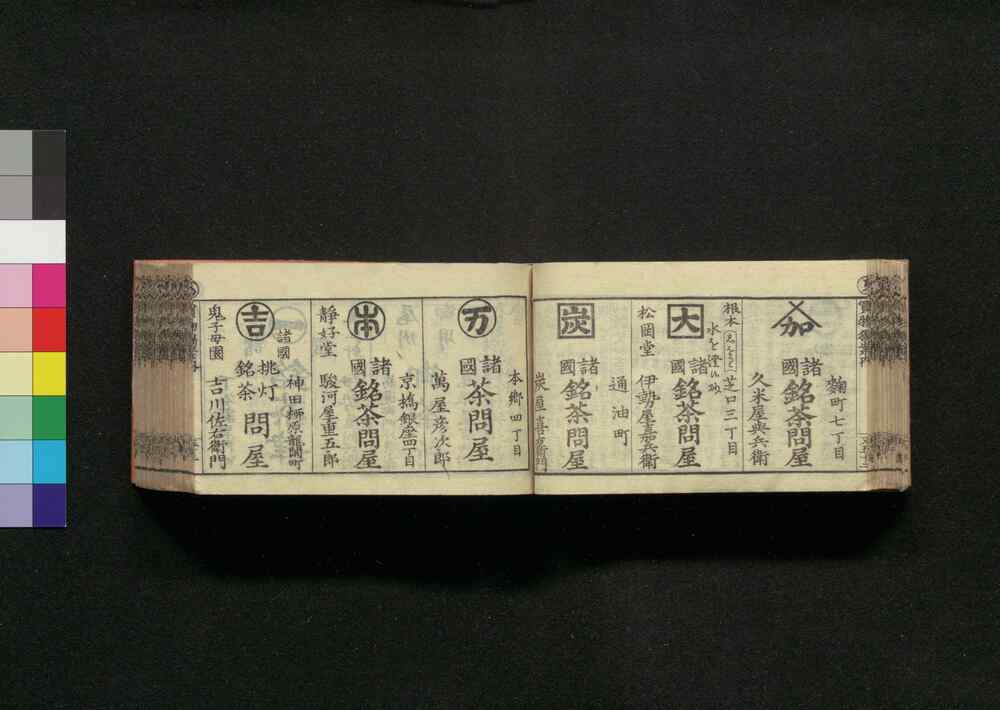 麹町七丁目
加
諸國
銘茶問屋
久米屋與兵衛
芝口三丁目
根本
水を澄の功
大
諸國
銘茶問屋
松岡堂
伊勢屋嘉兵衛
通油町
炭
諸國
銘茶問屋
炭屋喜右衛門
本郷四丁目
万
諸國
茶問屋
萬屋彦次郎
京橋銀座四丁目
本
諸國
銘茶問屋
靜好堂
駿河屋重五郎
神田柳原龍閑町
吉
諸國
銘茶
挑灯
問屋
鬼子母園
吉川佐右衛門